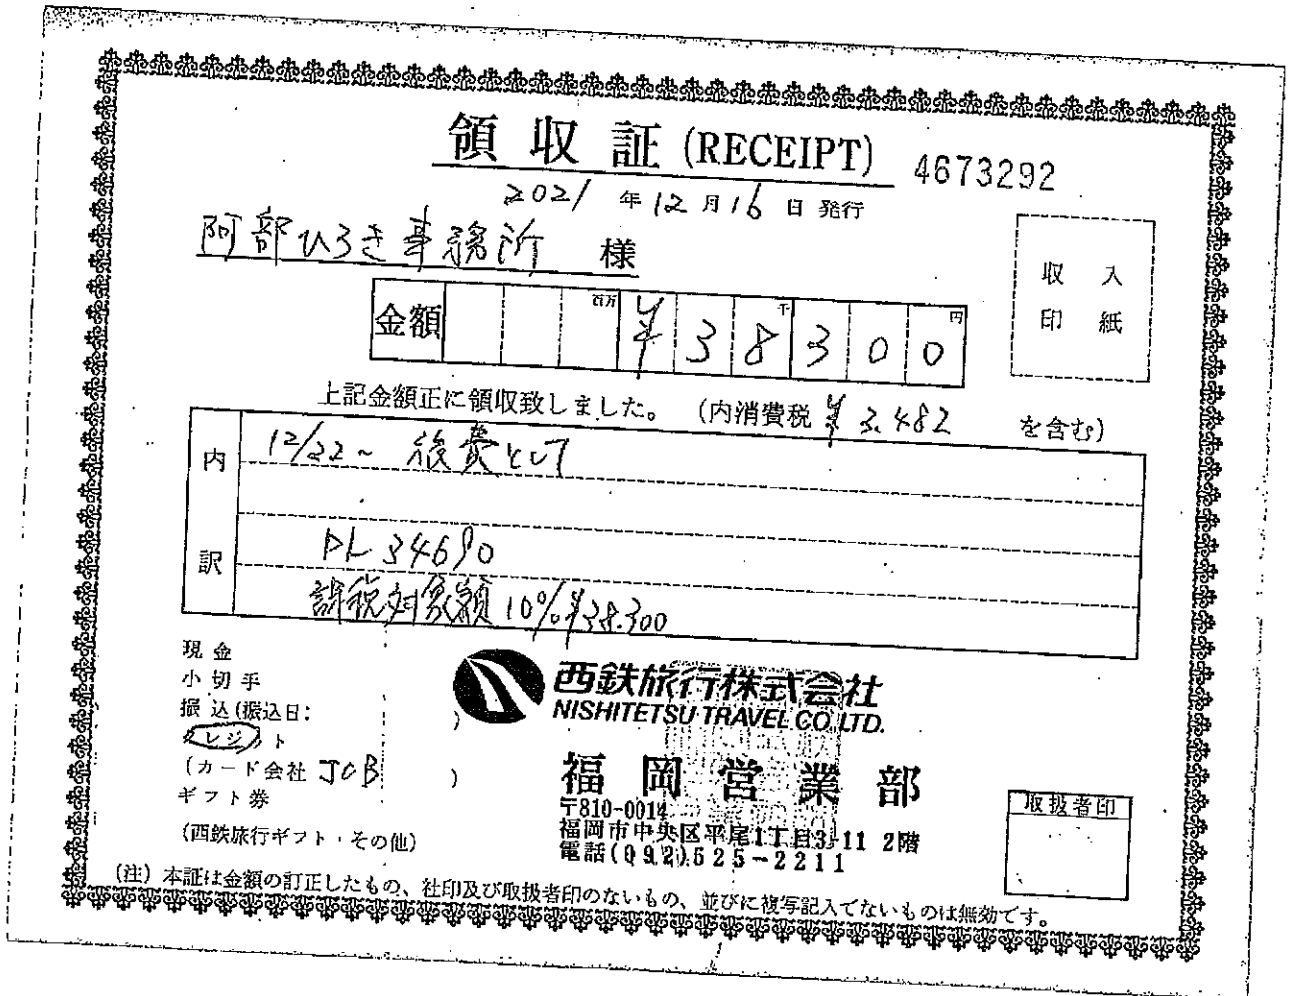 領収証 (RECEIPT) 4673292
2021 年 12 月 16 日 発行
阿部ひろき事務所 様
収入
印紙
金額 百万 千 円 ¥38300
上記金額正に領収致しました。 (内消費税 ¥3.482 を含む)
内訳
12/22~ 旅費として
DL34690
課税対象額 10% ¥38.300
現金
小切手
振込(振込日: )
クレジット
(カード会社 JCB )
ギフト券
(西鉄旅行ギフト・その他)
西鉄旅行株式会社
NISHITETSU TRAVEL CO.,LTD.
福岡営業部
〒810-0014
福岡市中央区平尾1丁目3-11 2階
電話(092)525-2211
取扱者印
(注) 本証は金額の訂正したもの、社印及び取扱者印のないもの、並びに複写記入でないものは無効です。